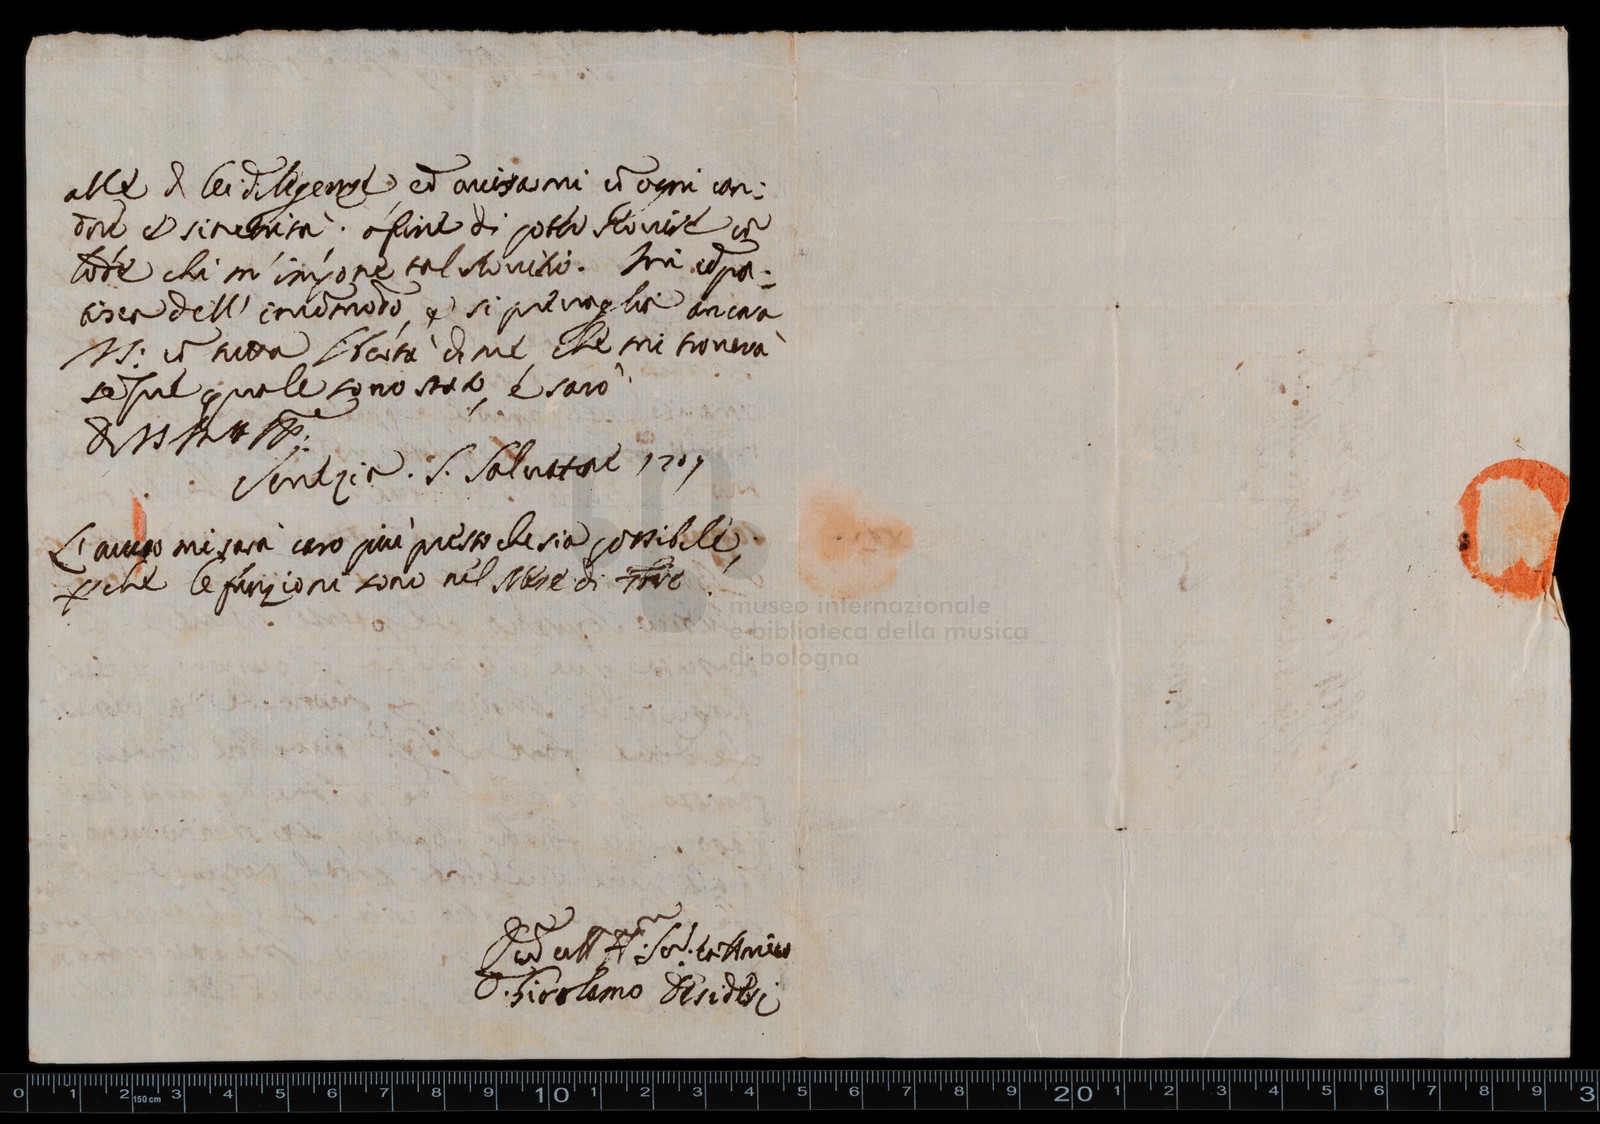 alle di lei diligenze, ed avisarmi cõ ogni can:
dore e sincerità. afine di poter servire cõ
lode chi m'impone tal servitio. Mi cõpa:
tisca dell' incõmodo, e si prevaglia ancora
VS: cõ tutta libertà di me che mi troverà
sẽpre quale sono stato, é sarò
di VS
Venezia. S. Salvatore 1707
L'aviso mi sarà caro più presto che sia possibile,
pche le funzioni sono nel Mese di
Ser. et Amico
D. Girolamo Desideri
museo internazionale
e biblioteca della musica
di bologna
0 1 2 150 cm 3 4 5 6 7 8 9 10 1 2 3 4 5 6 7 8 9 20 1 2 3 4 5 6 7 8 9 3